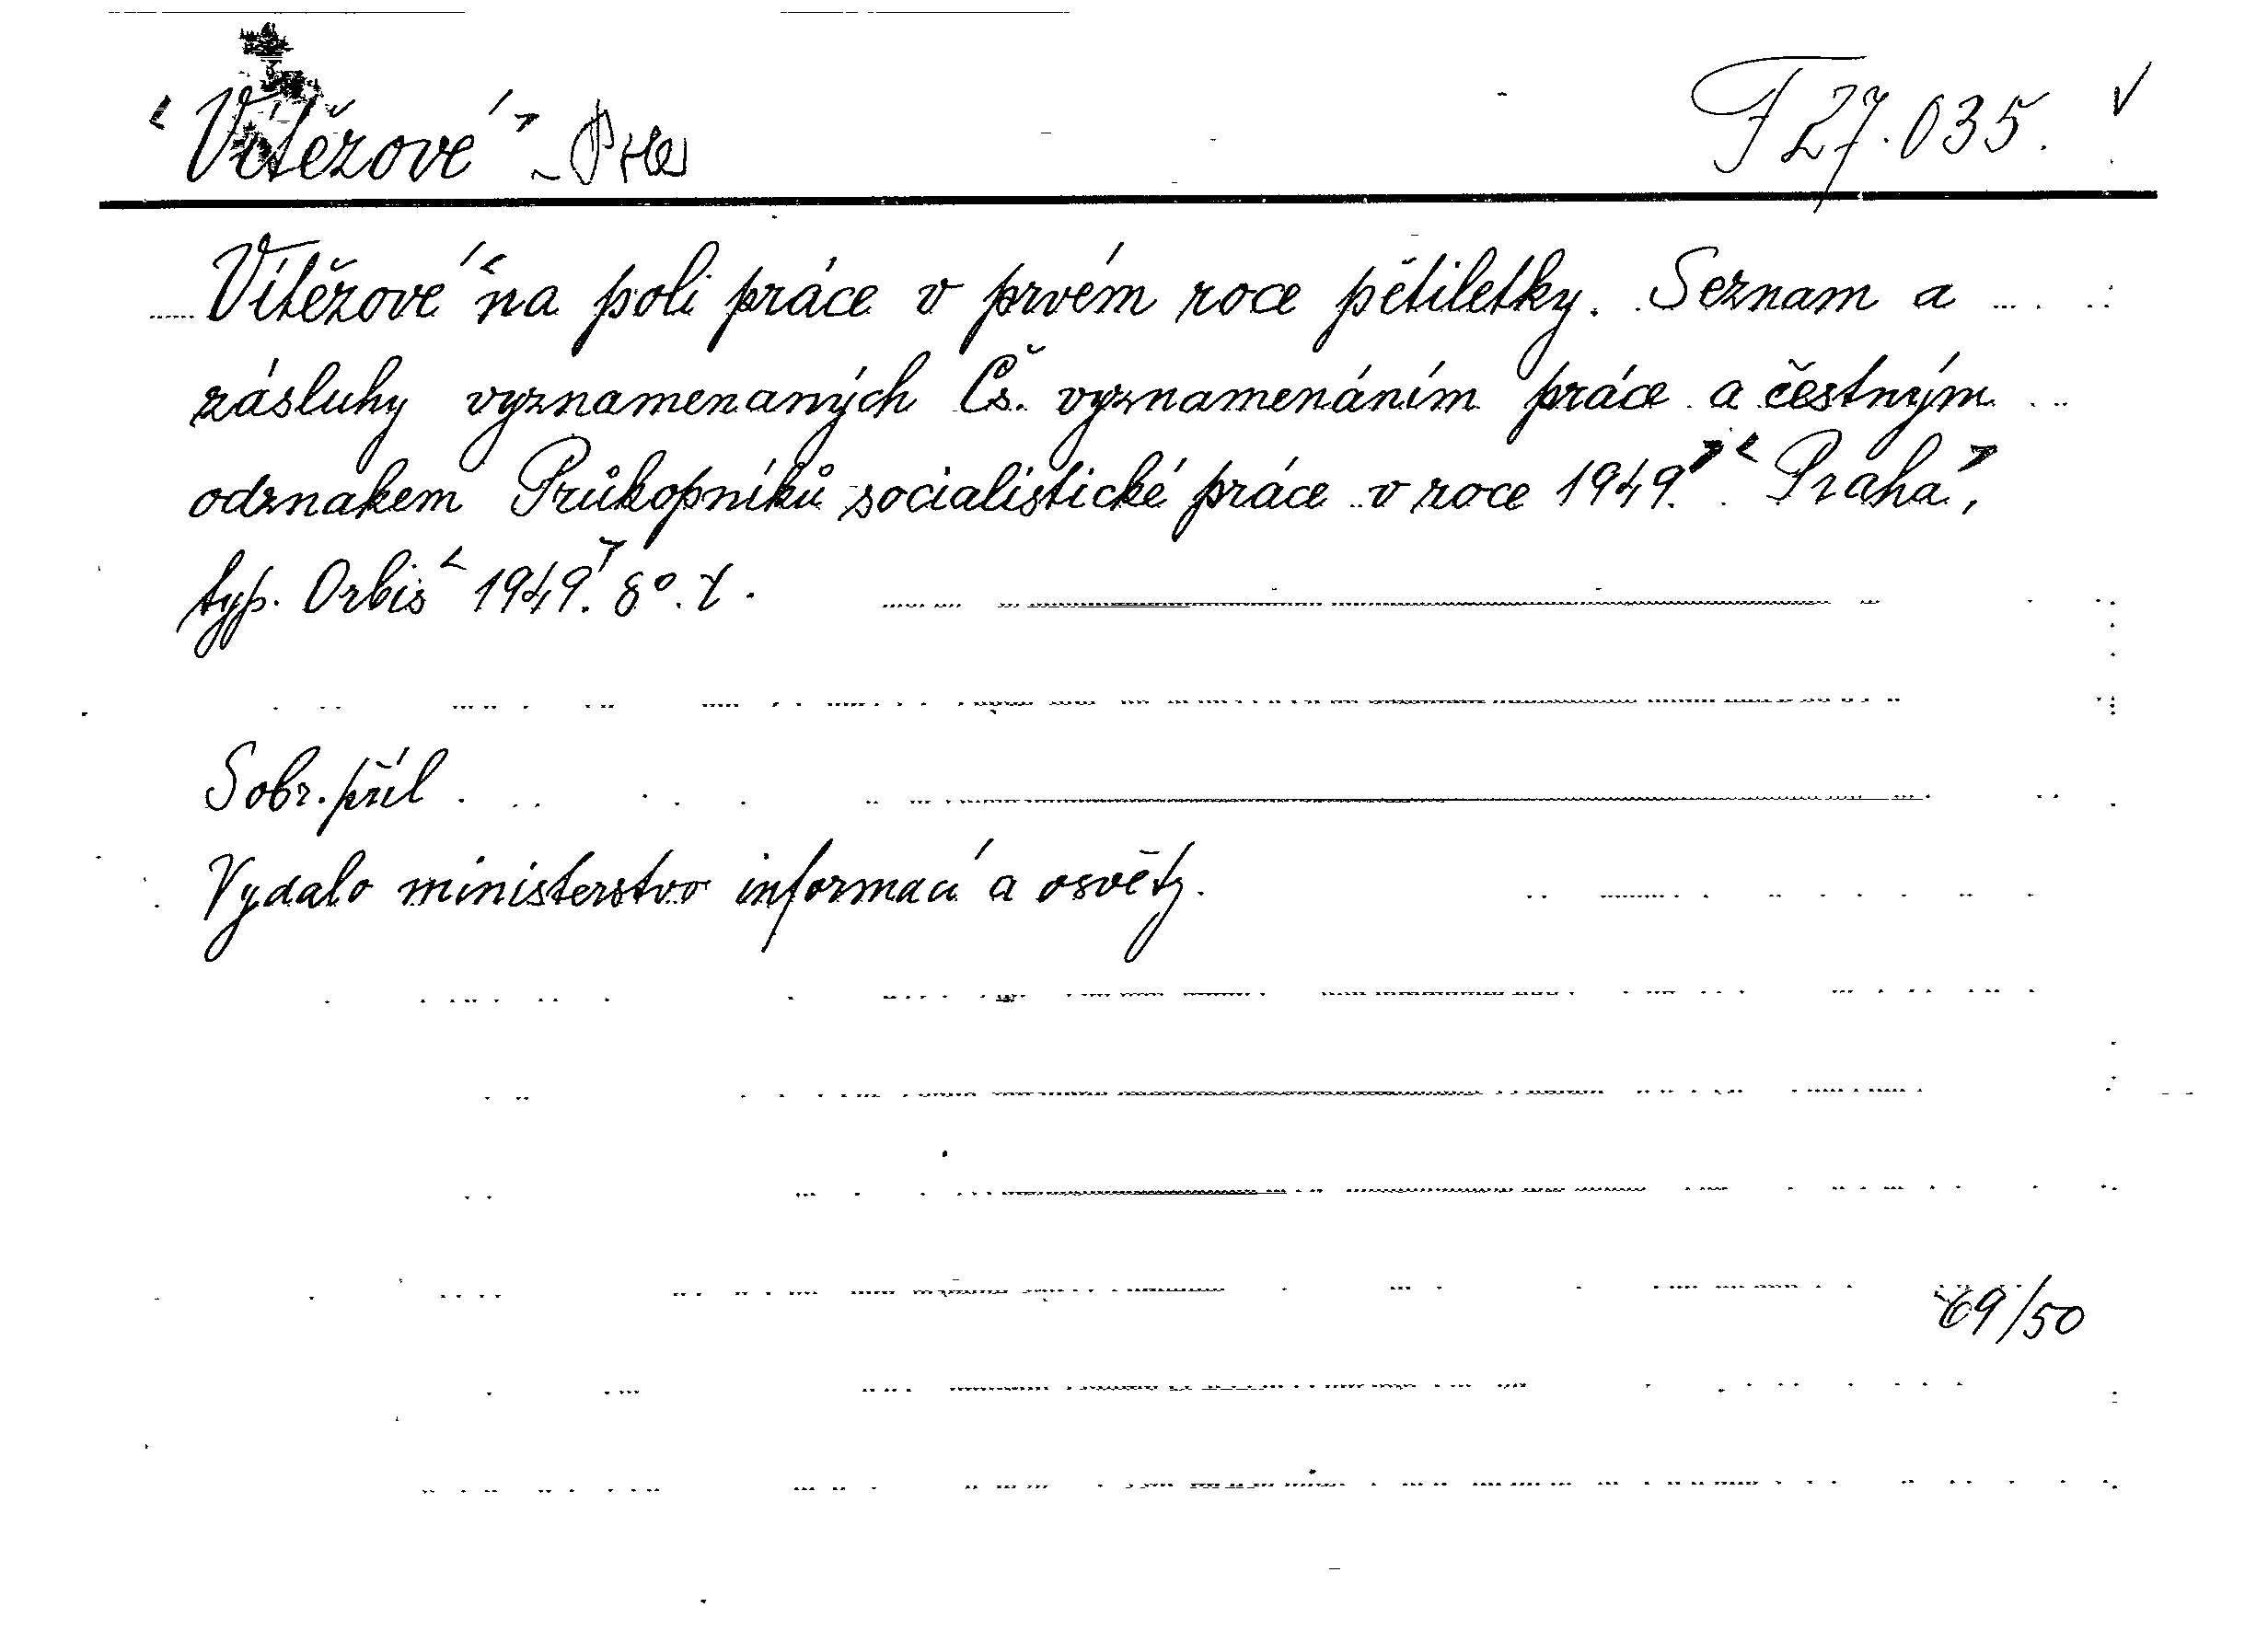 Vítězové
F 27.035.
Vítězové na poli práce v prvém roce pětiletky. Seznam a
zásluhy vyznamenaných Čs. vyznamenáním práce a čestným
odznakem Průkopníků socialistické práce v roce 1949. Praha,
typ. Orbis 1949. 8°.
Sobr. příl.
Vydalo ministerstvo informací a osvěty.
69/50